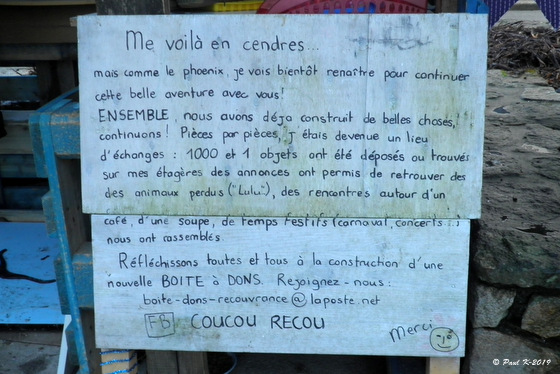 Me voilà en cendres...
mais comme le phoenix, je vais bientôt renaître pour continuer
cette belle aventure avec vous!
ENSEMBLE, nous avons déja construit de belles choses,
continuons! Pièces par pièces, j étais devenue un lieu
d'échanges : 1000 et 1 objets ont été déposés ou trouvés
sur mes étagères des annonces ont permis de retrouver des
des animaux perdus ("Lulu"), des rencontres autour d'un
café, d'une soupe, de temps festifs (carnaval, concerts...)
nous ont rassemblés.
Réfléchissons toutes et tous à la construction d'une
nouvelle BOITE à DONS. Rejoignez-nous:
boite-dons-recouvrance@laposte.net
FB COUCOU RECOU
Merci
© Paul K-2019